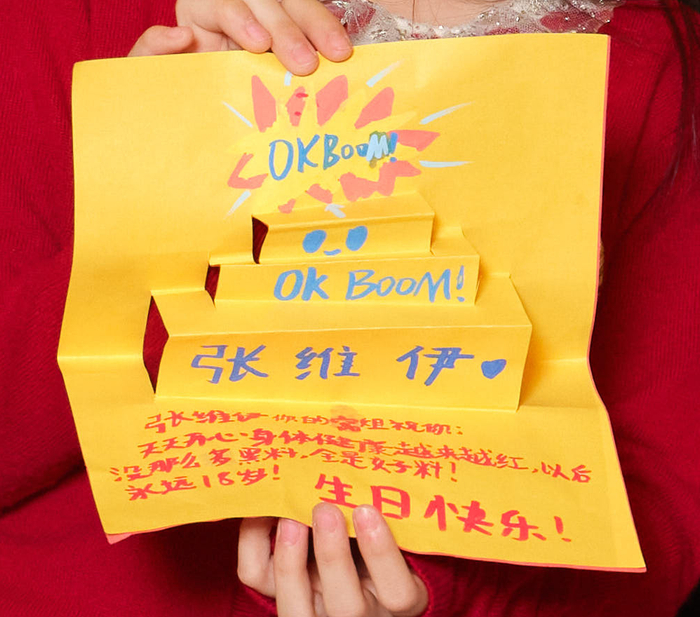 OKBOOM!
OK BOOM!
张维伊
张维伊你的宣组祝你:
天天开心,身体健康,越来越红,以后
没那么多黑料,全是好料!
永远18岁!
生日快乐!